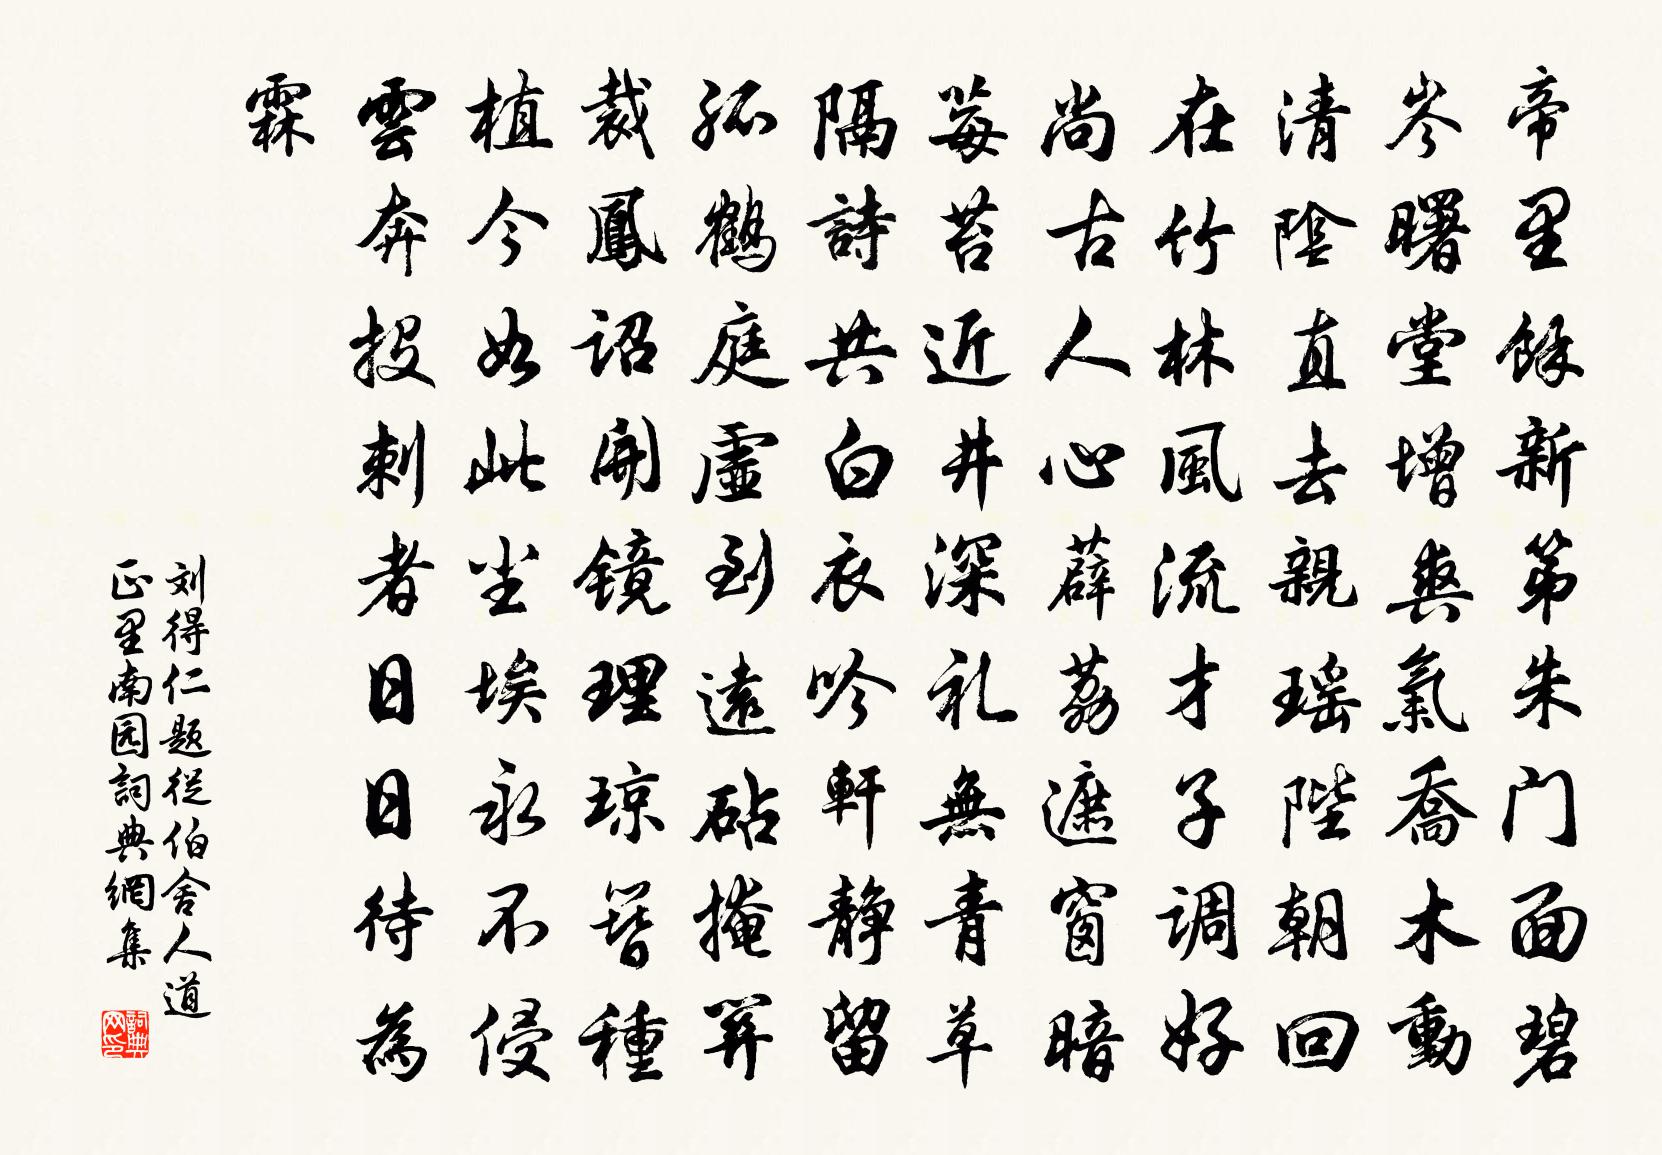 帝里餘新第朱门面碧
岑曙堂增爽氣喬木動
清陰直去親瑶陛朝回
在竹林風流才子調好
尚古人心薜荔遮窗暗
莓苔近井深礼無青草
隔詩共白衣吟軒静留
孤鶴庭虛到遠砧掩關
裁鳳詔開镜理琼簪種
植今如此尘埃永不侵
雲奔投刺者日日待為
霖
刘得仁题從伯舍人道
正里南园詞典網集
詞典网印